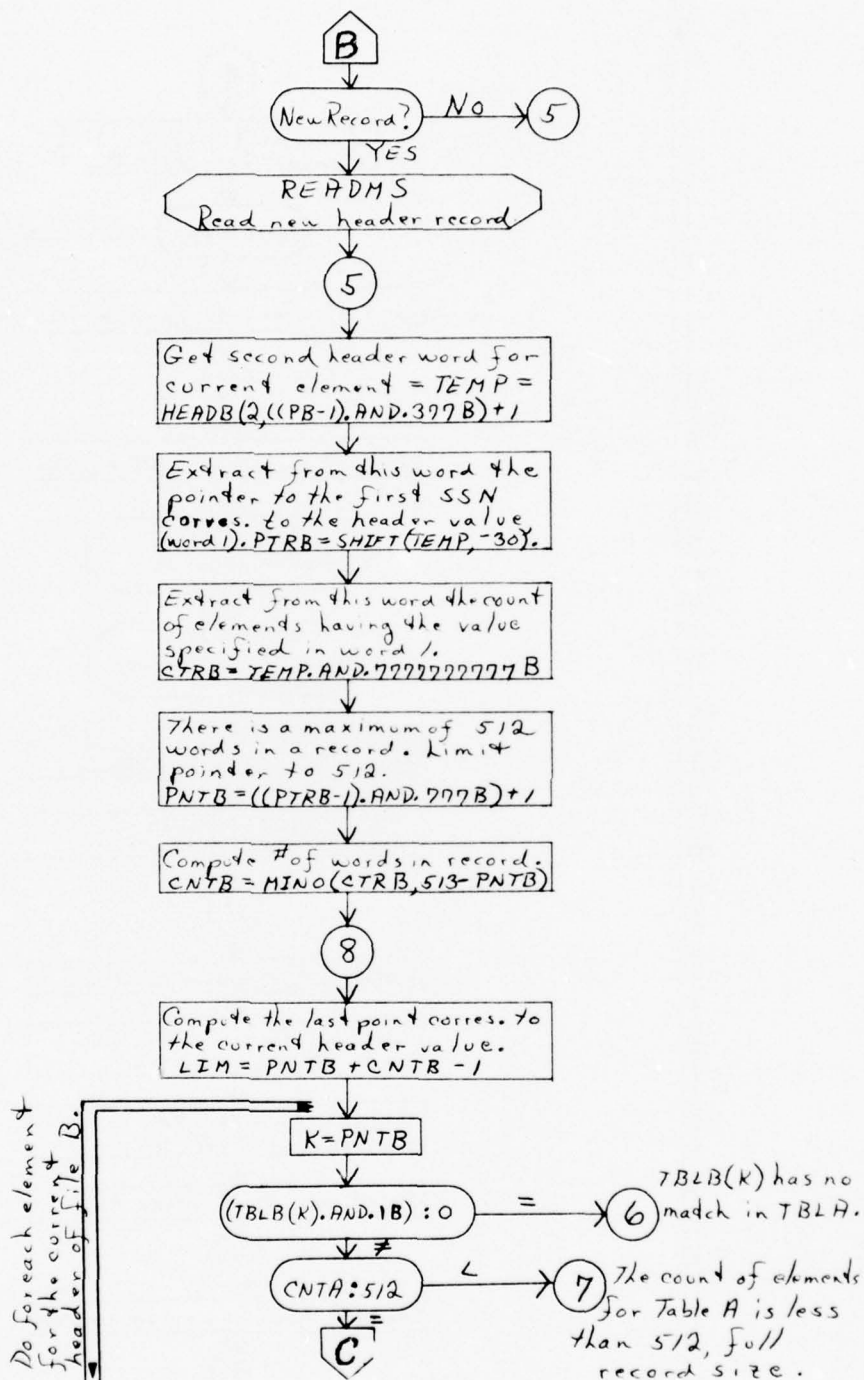 B
New Record?
NO
5
YES
READMS
Read new header record
5
Get second header word for
current element = TEMP =
HEADB(2,((PB-1).AND.377B)+1
Extract from this word the
pointer to the first SSN
corres. to the header value
(word 1). PTRB = SHIFT(TEMP,-30).
Extract from this word the count
of elements having the value
specified in word 1.
CTRB = TEMP.AND.7777777777B
There is a maximum of 512
words in a record. Limit
pointer to 512.
PNTB = ((PTRB-1).AND.777B)+1
Compute # of words in record.
CNTB = MINO(CTRB,513-PNTB)
8
Compute the last point corres. to
the current header value.
LIM = PNTB + CNTB - 1
Do for each element
for the current
header of file B.
K = PNTB
(TBLB(K).AND.1B) : 0
=
6
TBLB(K) has no
match in TBLA.
≠
CNTA : 512
<
7
The count of elements
for Table A is less
than 512, full
record size.
=
C